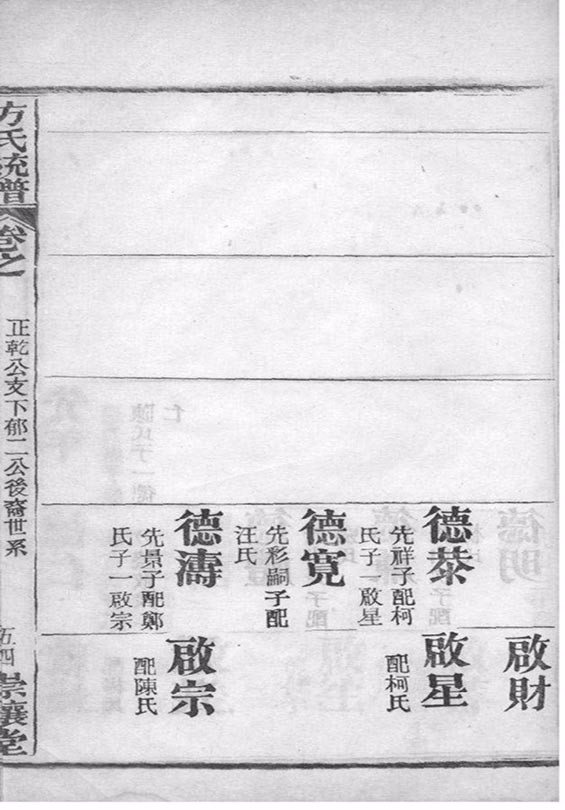 啟財
德恭
先祥子配柯
氏子一啟星
啟星
配柯氏
德寬
先彩嗣子配
汪氏
德濤
先景子配鄭
氏子一啟宗
啟宗
配陳氏
方氏統譜
卷之
正乾公支下郁二公後裔世系
五四
崇讓堂